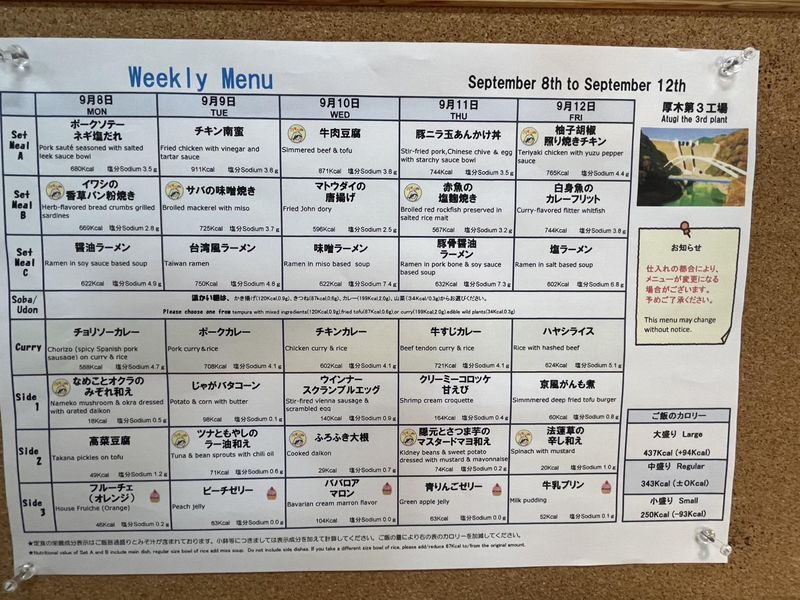 Weekly Menu
September 8th to September 12th
9月8日
MON
9月9日
TUE
9月10日
WED
9月11日
THU
9月12日
FRI
Set
Meal
A
ポークソテー
ネギ塩だれ
Pork sauté seasoned with salted
leek sauce bowl
680Kcal 塩分Sodium 3.5 g
チキン南蛮
Fried chicken with vinegar and
tartar sauce
911Kcal 塩分Sodium 3.8 g
牛肉豆腐
Simmered beef & tofu
871Kcal 塩分Sodium 3.8 g
豚ニラ玉あんかけ丼
Stir-fried pork,Chinese chive & egg
with starchy sauce bowl
744Kcal 塩分Sodium 3.5 g
柚子胡椒
照り焼きチキン
Teriyaki chicken with yuzu pepper
sauce
765Kcal 塩分Sodium 4.4 g
Set
Meal
B
イワシの
香草パン粉焼き
Herb-flavored bread crumbs grilled
sardines
669Kcal 塩分Sodium 2.8 g
サバの味噌焼き
Broiled mackerel with miso
725Kcal 塩分Sodium 3.7 g
マトウダイの
唐揚げ
Fried John dory
596Kcal 塩分Sodium 2.5 g
赤魚の
塩麹焼き
Broiled red rockfish preserved in
salted rice malt
567Kcal 塩分Sodium 3.2 g
白身魚の
カレーフリット
Curry-flavored flitter whitfish
744Kcal 塩分Sodium 3.8 g
Set
Meal
C
醤油ラーメン
Ramen in soy sauce based soup
622Kcal 塩分Sodium 4.9 g
台湾風ラーメン
Taiwan ramen
750Kcal 塩分Sodium 4.6 g
味噌ラーメン
Ramen in miso based soup
622Kcal 塩分Sodium 7.4 g
豚骨醤油
ラーメン
Ramen in pork bone & soy sauce
based soup
632Kcal 塩分Sodium 7.3 g
塩ラーメン
Ramen in salt based soup
602Kcal 塩分Sodium 6.8 g
Soba/
Udon
温かい麺は、かき揚げ(120Kcal,0.9g)、きつね(87kcal,0.6g)、カレー(199Kcal,2.0g)、山菜(34Kcal/0.3g)からお選びください。
Please choose one from tempura with mixed ingredients(120Kcal,0.9g)fried tofu(87Kcal,0.6g) or curry(199Kcal,2.0g)edible wild plants(34Kcal,0.3g)
Curry
チョリソーカレー
Chorizo (spicy Spanish pork
sausage) on curry & rice
588Kcal 塩分Sodium 4.7 g
ポークカレー
Pork curry&rice
708Kcal 塩分Sodium 4.1 g
チキンカレー
Chicken curry & rice
602Kcal 塩分Sodium 4.1 g
牛すじカレー
Beef tendon curry & rice
721Kcal 塩分Sodium 4.1 g
ハヤシライス
Rice with hashed beef
624Kcal 塩分Sodium 5.1 g
Side
1
なめことオクラの
みぞれ和え
Nameko mushroom & okra dressed
with grated daikon
18Kcal 塩分Sodium 0.5 g
じゃがバタコーン
Potato & corn with butter
98Kcal 塩分Sodium 0.1 g
ウインナー
スクランブルエッグ
Stir-fired vienna sausage &
scrambled egg
140Kcal 塩分Sodium 0.9 g
クリーミーコロッケ
甘えび
Shrimp cream croquette
164Kcal 塩分Sodium 0.4 g
京風がんも煮
Simmmered deep fried tofu burger
60Kcal 塩分Sodium 0.8 g
Side
2
高菜豆腐
Takana pickles on tofu
49Kcal 塩分Sodium 1.2 g
ツナともやしの
ラー油和え
Tuna & bean sprouts with chili oil
71Kcal 塩分Sodium 0.6 g
ふろふき大根
Cooked daikon
29Kcal 塩分Sodium 0.7 g
隠元とさつま芋の
マスタードマヨ和え
Kidney beans & sweet potato
dressed with mustard & mayonnaise
74Kcal 塩分Sodium 0.2 g
法蓮草の
辛し和え
Spinach with mustard
20Kcal 塩分Sodium 1.0 g
Side
3
フルーチェ
（オレンジ）
House Fruiche (Orange)
46Kcal 塩分Sodium 0.2 g
ピーチゼリー
Peach jelly
63Kcal 塩分Sodium 0.0 g
ババロア
マロン
Bavarian cream marron flavor
104Kcal 塩分Sodium 0.0 g
青りんごゼリー
Green apple jelly
63Kcal 塩分Sodium 0.0 g
牛乳プリン
Milk pudding
52Kcal 塩分Sodium 0.1 g
厚木第３工場
Atugi the 3rd plant
お知らせ
仕入れの都合により、
メニューが変更になる
場合がございます。
予めご了承ください。
This menu may change
without notice.
ご飯のカロリー
大盛り Large
437Kcal (+94Kcal)
中盛り Regular
343Kcal (±0Kcal)
小盛り Small
250Kcal (−93Kcal)
★定食の栄養成分表示はご飯普通盛りとみそ汁が含まれております。小鉢等につきましては表示成分を加えて計算してください。ご飯の量により右の表のカロリーを加減してください。
★Nutritional value of Set A and B include main dish, regular size bowl of rice add miso soup. Do not include side dishes. If you take a different size bowl of rice, please add/reduce 67Kcal to/from the original amount.